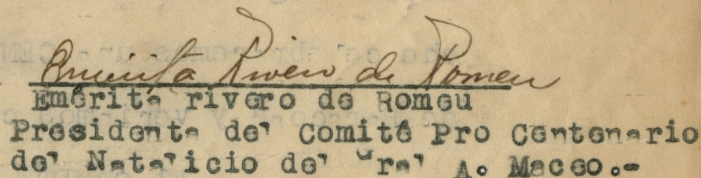 Emerita Rivero de Romeu
Emérita rivero de Romeu
Presidenta del Comité Pro Centenario
del Natalicio del Gral A. Maceo.-